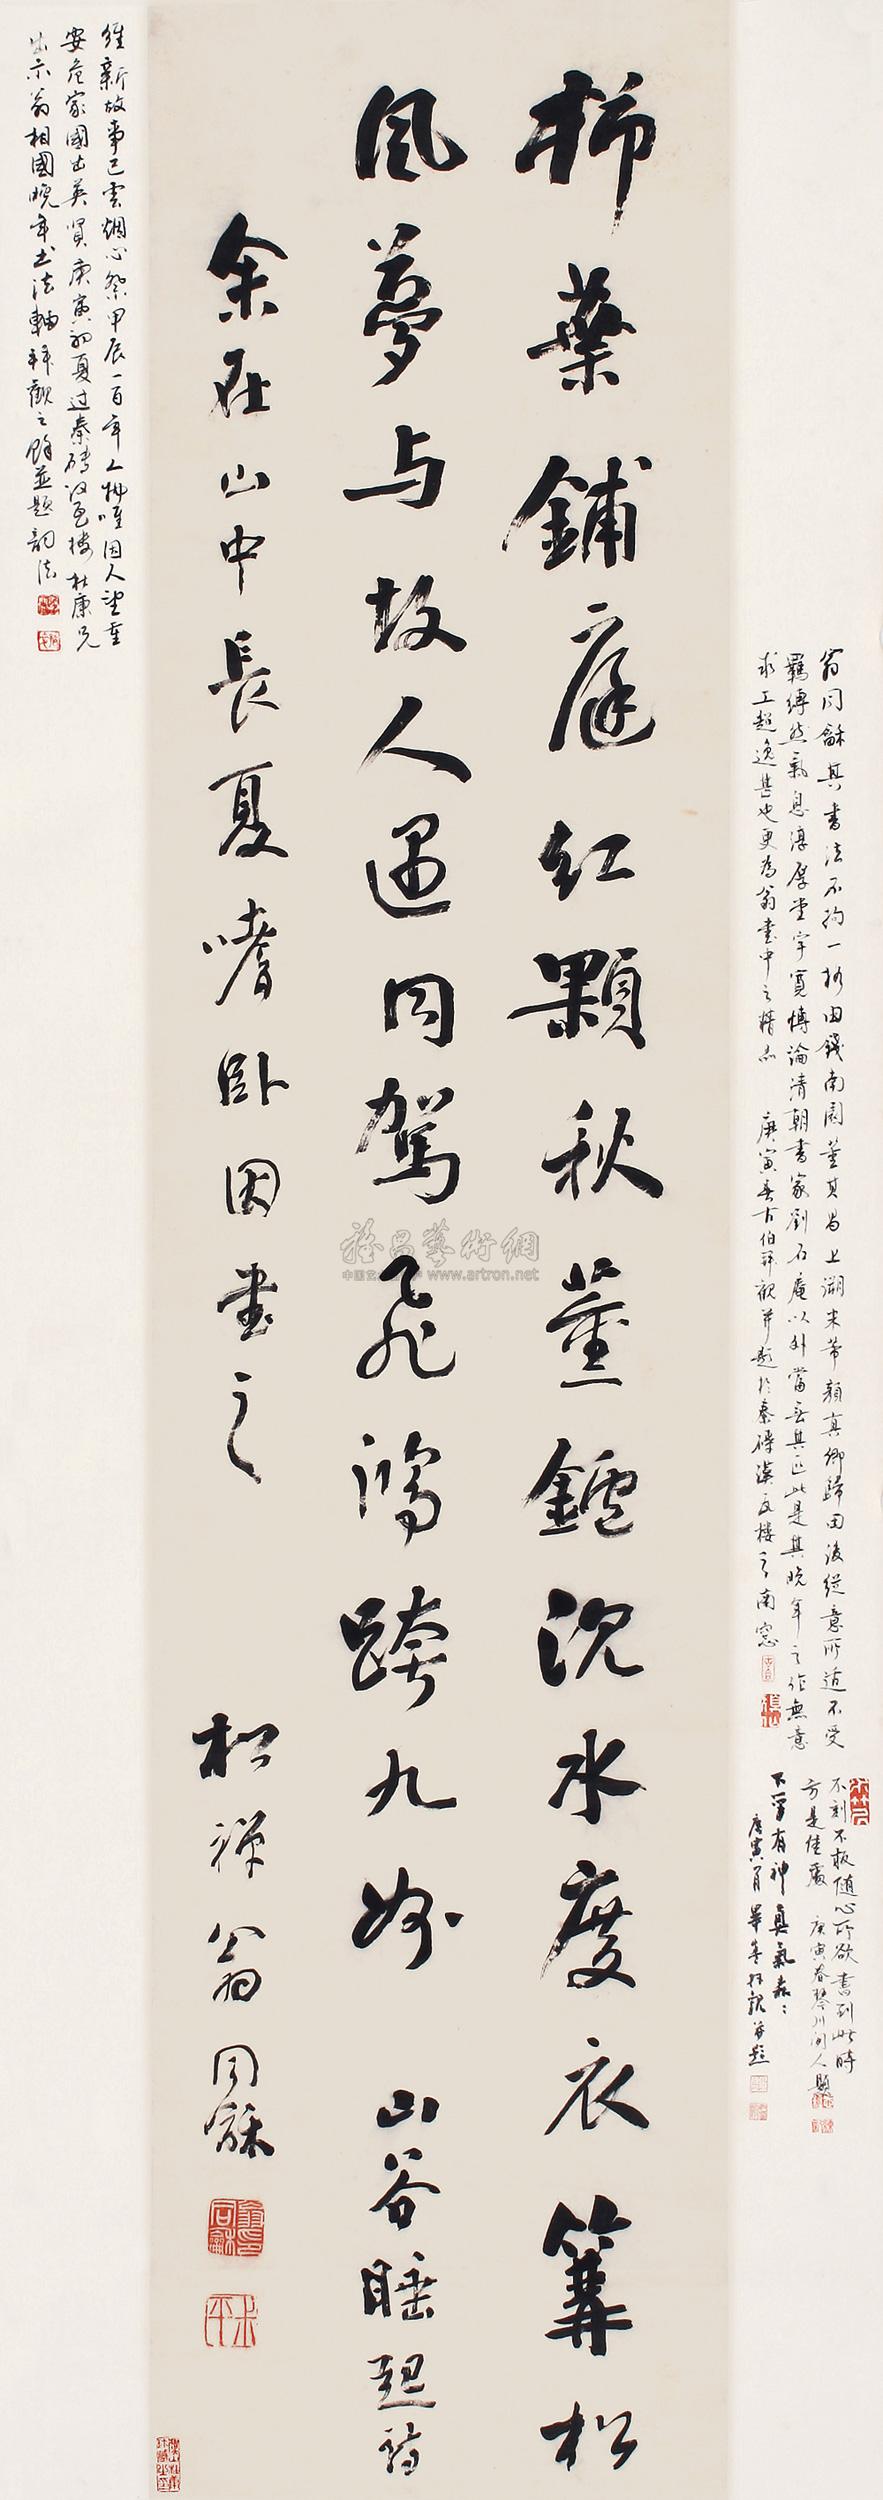 柿葉鋪庭紅顆秋薰鑪沉水度衣篝松
風夢与故人遇同駕飛鴻跨九州 山谷睡起詩
余在山中長夏嗜卧因書之 松禪翁同龢
翁同龢其書法不拘一格由錢南園董其昌上溯米芾顏真卿歸田後縱意所適不受
羈縛然氣息淳厚堂宇寬博論清朝書家劉石庵以外當無其匹此是其晚年之作無意
求工超逸甚也更為翁書中之精品 庚寅春古伯拜觀并題於秦磚漢瓦樓之南窗
不刻不板随心所欲書到此時
方是佳處 庚寅春琴川閒人題
下筆有神真氣
維新故事已雲烟心祭甲辰一百年人物唯因人望重
安危家國出英賢庚寅初夏过秦磚汉瓦楼杜康兄
出示翁相國晚年书法軸拜觀之餘並題韵法
雅昌藝術網
www.artron.net